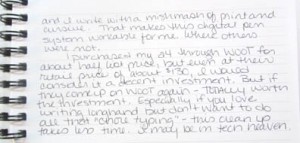 and I write with a mishmash of print and
cursive. That makes this digital pen
system workable for me where others
were not.
I purchased my off through WOOT for
about half list price, but even at their
retail price of about $130, I would
consider it a decent investment. But if
they come up on WOOT again - TOTALLY worth
the investment. Especially if you love
writing longhand but don't want to do
all that "whole typing" - this clean up
takes less time. I may be in tech heaven.